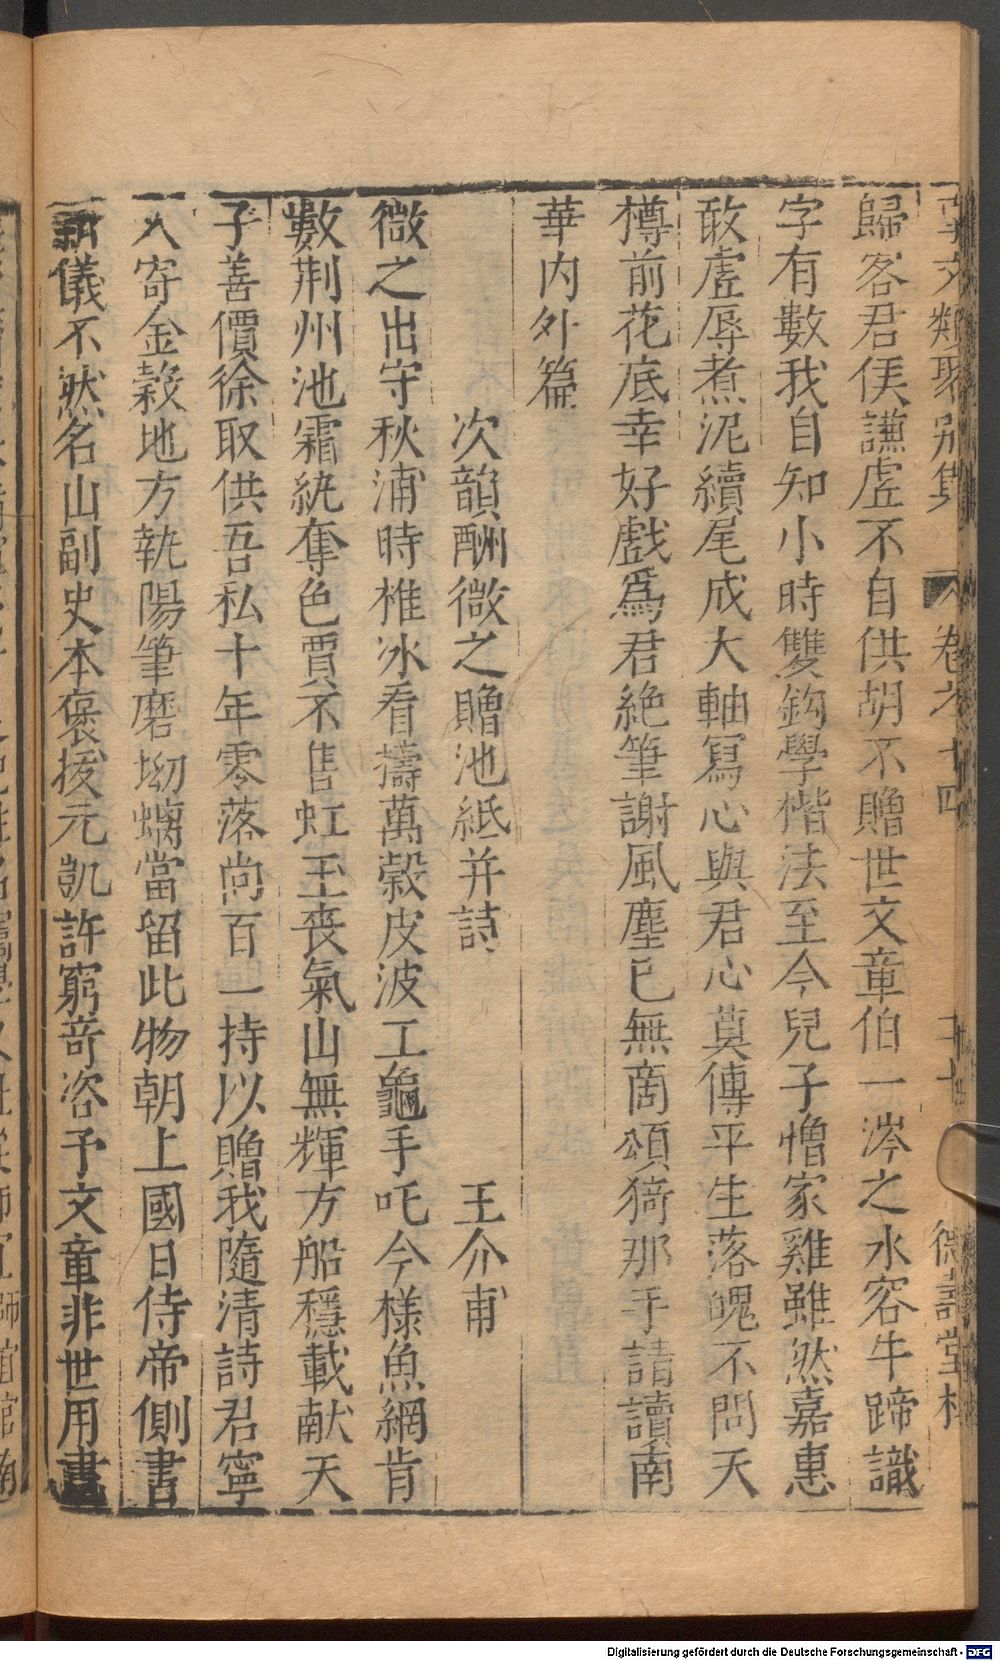 事文類聚別集 卷之十四 二十 德壽堂梓
歸客君侯謙虛不自供胡不贈世文章伯一涔之水容牛蹄識
字有數我自知小時雙鈎學楷法至今兒子憎家雞雖然嘉惠
敢虛辱煮泥續尾成大軸冩心與君心莫傳平生落魄不問天
樽前花底幸好戲爲君絶筆謝風塵已無商頌猗那手請讀南
華內外篇
次韻酬微之贈池紙并詩 王介甫
微之出守秋浦時椎冰看擣萬榖皮波工龜手吒今様魚網肯
數荆州池霜紈奪色賈不售虹玉喪氣山無輝方船穩載献天
子善價徐取供吾私十年零落尚百一持以贈我隨清詩君寧
久寄金榖地方執陽筆磨坳螭當留此物朝上國日侍帝側書
新儀不然名山副史本褒拔元凱許窮竒咨予文章非世用畫
Digitalisierung gefördert durch die Deutsche Forschungsgemeinschaft - DFG